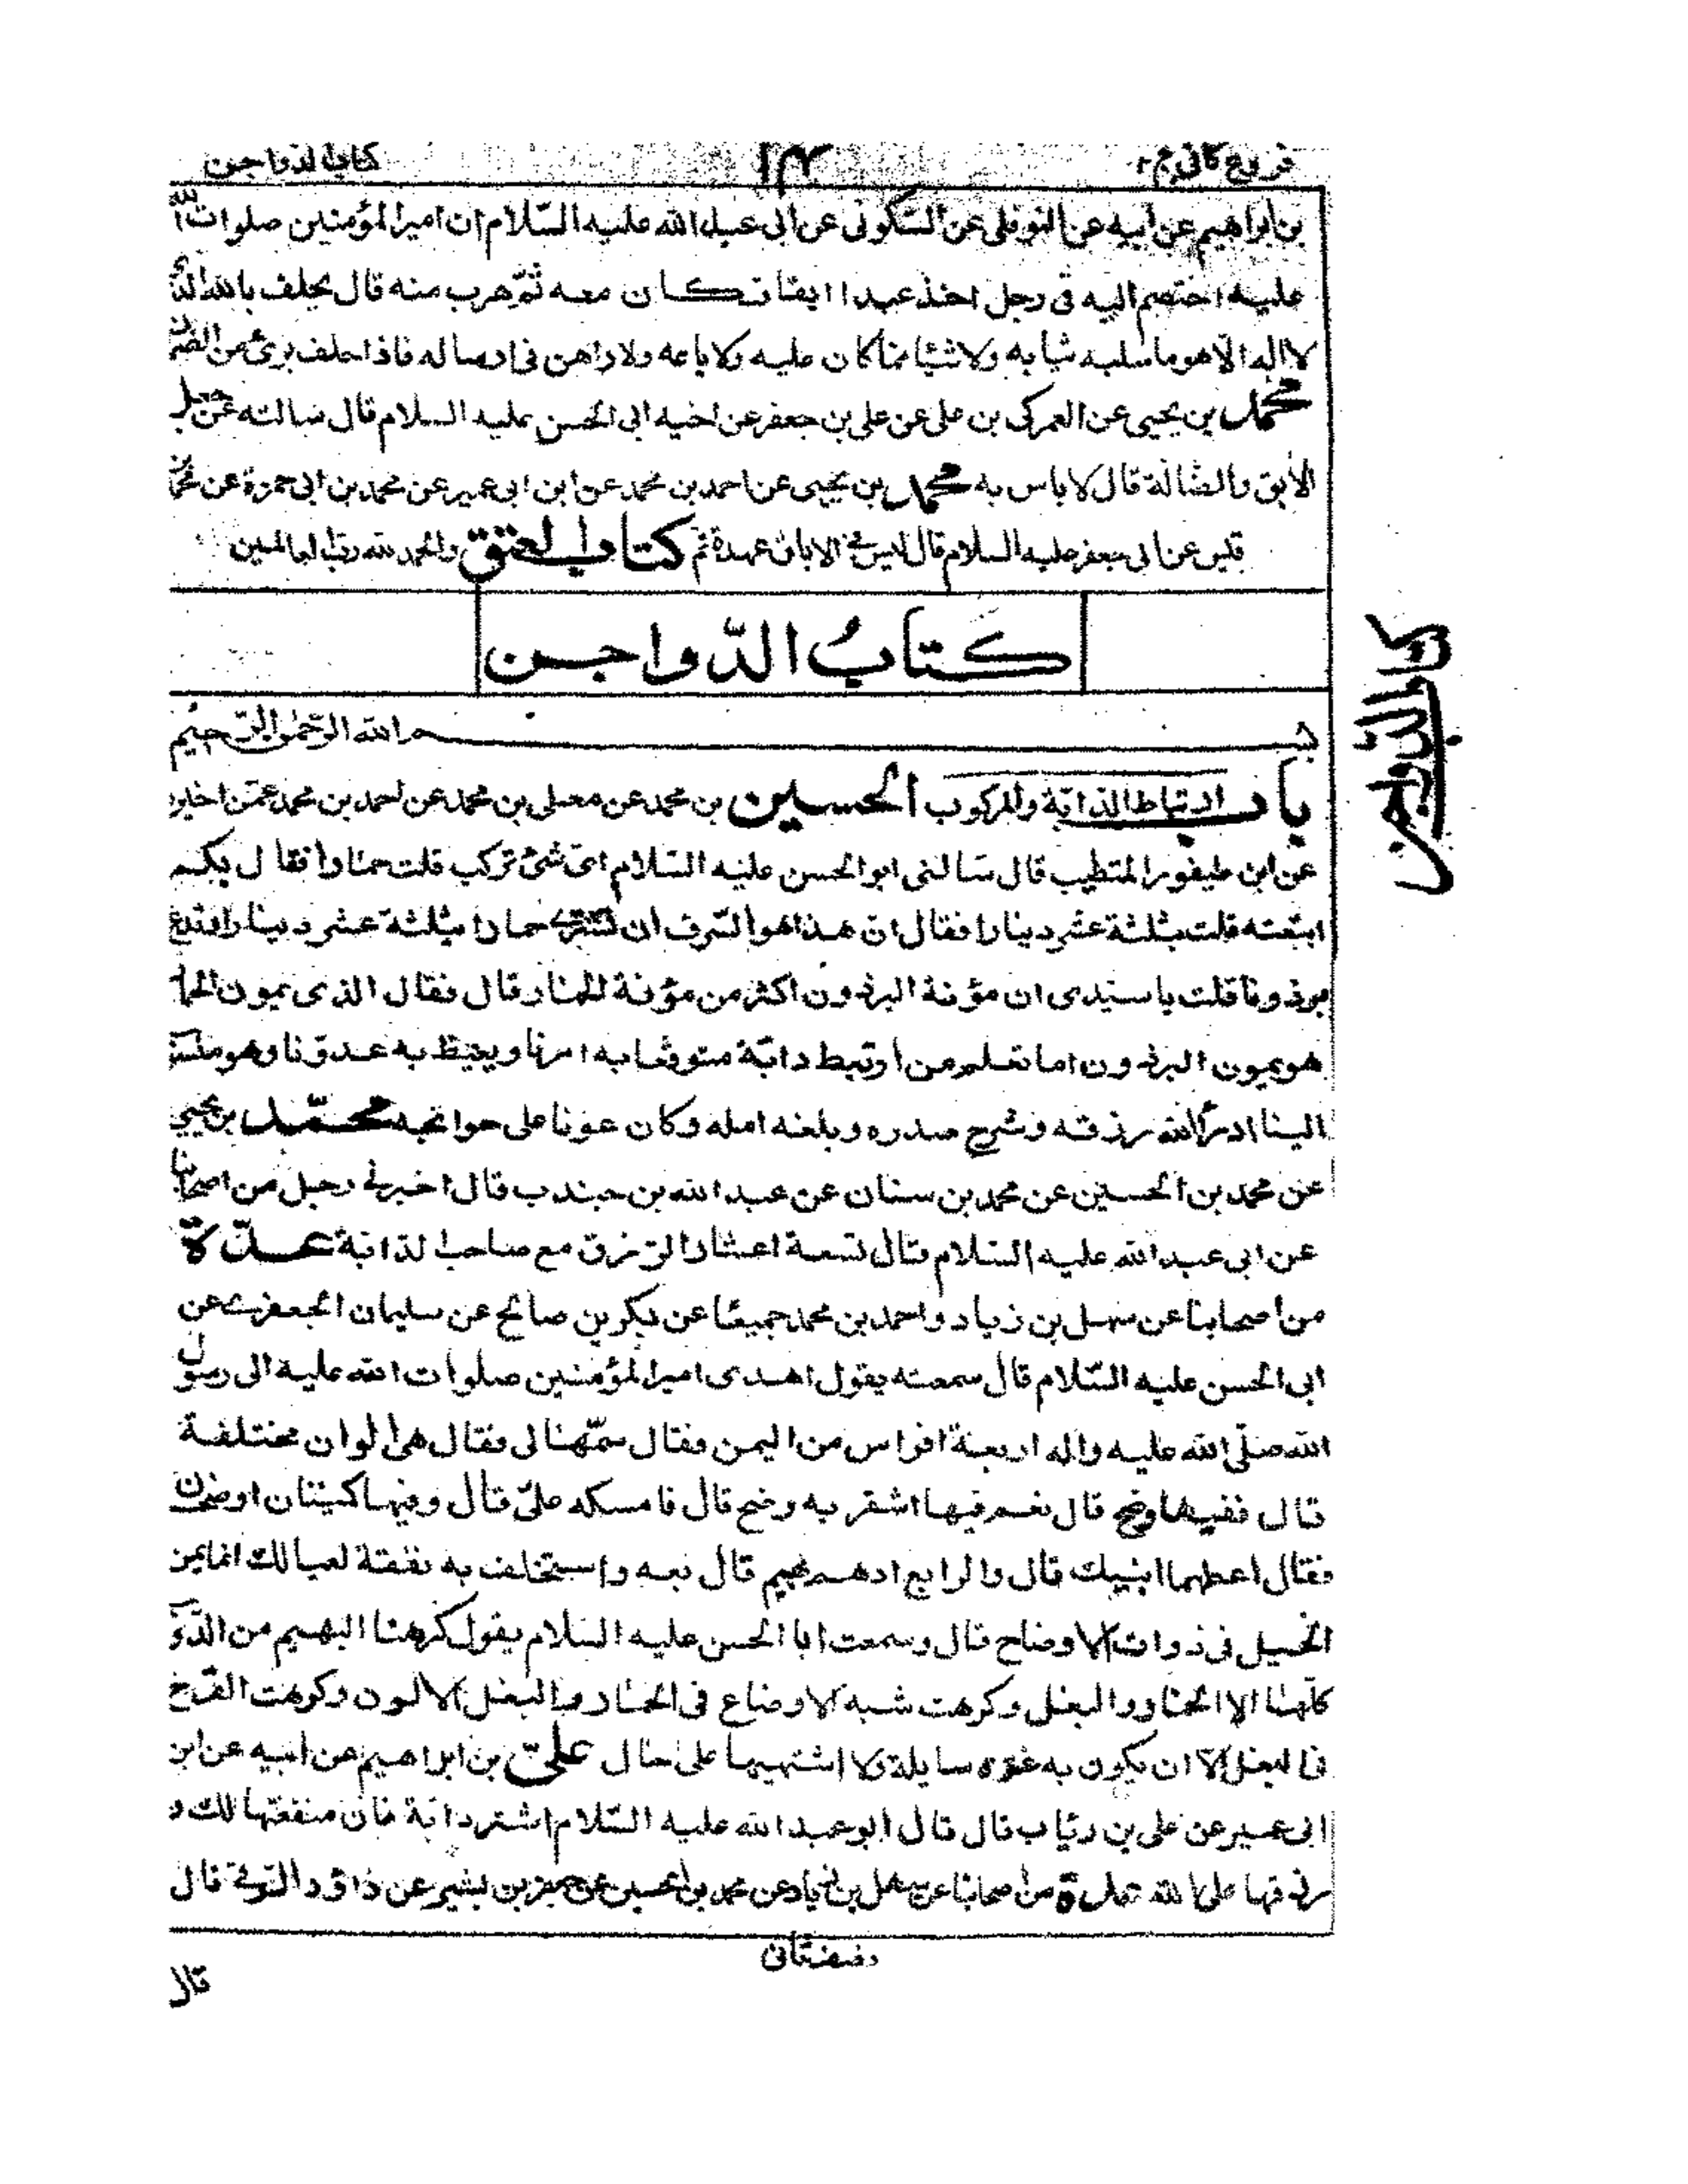 فروع كافي ج٢ ١٣ كتاب الدواجن
بن ابراهيم عن ابيه عن النوفلي عن السكوني عن ابي عبد الله عليه السّلام ان امير المؤمنين صلوات الله
عليه اختصم اليه في رجل اخذ عبدا ابقا فكان معه ثمّ هرب منه قال يحلف بالله الذي
لا اله الّا هو ما سلبه ثيابه ولا شيئا مما كان عليه ولا باعه ولا داهن في ارساله فاذا حلف برئ من الضمان
محمّد بن يحيى عن العمركي بن علي عن علي بن جعفر عن اخيه ابي الحسن عليه السلام قال سالته عن جعل
الآبق والضّالّة قال لا باس به محمد بن يحيى عن احمد بن محمد عن ابن ابي عمير عن محمد بن ابي حمزة عن محمد
قيس عن ابي جعفر عليه السلام قال ليس في الاباق عهدة تم كتاب العتق والحمد لله رب العالمين
كتابُ الدّواجن
كتاب الدواجن
بسم الله الرّحمٰن الرّحيم
باب ارتباط الدّابّة والمركوب الحسين بن محمد عن معلى بن محمد عن احمد بن محمد عمّن اخبره
عن ابن طيفور المتطبب قال سالني ابو الحسن عليه السّلام ايّ شيء تركب قلت حمارا فقال بكم
ابتعته قلت بثلثة عشر دينارا فقال انّ هذا هو السّرف ان تشتري حمارا بثلثة عشر دينارا وتدع
برذونا قلت يا سيّدي ان مؤنة البرذون اكثر من مؤنة الحمار قال فقال الذي يمون الحمار
هو يمون البرذون اما تعلم من ارتبط دابّة متوقعا به امرنا ويغيظ به عدوّنا وهو منسوب
الينا ادرّ الله رزقه وشرح صدره وبلغه امله وكان عونا على حوائجه محمّد بن يحيى
عن محمد بن الحسين عن محمد بن سنان عن عبد الله بن جندب قال اخبرني رجل من اصحابنا
عن ابي عبد الله عليه السّلام قال تسعة اعشار الرزق مع صاحب الدّابّة عدّة
من اصحابنا عن سهل بن زياد واحمد بن محمد جميعًا عن بكر بن صالح عن سليمان الجعفري عن
ابي الحسن عليه السّلام قال سمعته يقول اهدى امير المؤمنين صلوات الله عليه الى رسول
الله صلّى الله عليه واله اربعة افراس من اليمن فقال سمّها لي فقال هي الوان مختلفة
قال ففيها وضح قال نعم فيها اشقر به وضح قال فامسكه عليّ قال وفيها كميتان اوضحان
فقال اعطهما ابنيك قال والرابع ادهم بهيم قال بعه واستخلف به نفقة لعيالك انما يمن
الخيل في ذوات الاوضاح قال وسمعت ابا الحسن عليه السّلام يقول كرهنا البهيم من الدّواب
كلّها الا الحمار والبغل وكرهت شيه الاوضاع في الحمار والبغل الالون وكرهت القرح
في البغل الّا ان يكون به غرّة سايلة ولا اشتهيها على حال عليّ بن ابراهيم عن ابيه عن ابن
ابي عمير عن علي بن رئاب قال قال ابو عبد الله عليه السّلام اشتر دابّة فان منفعتها لك و
رزقها على الله عدة من اصحابنا عن سهل بن زياد عن محمد بن الحسين عن جعفر بن بشير عن داؤد الرقي قال
قال